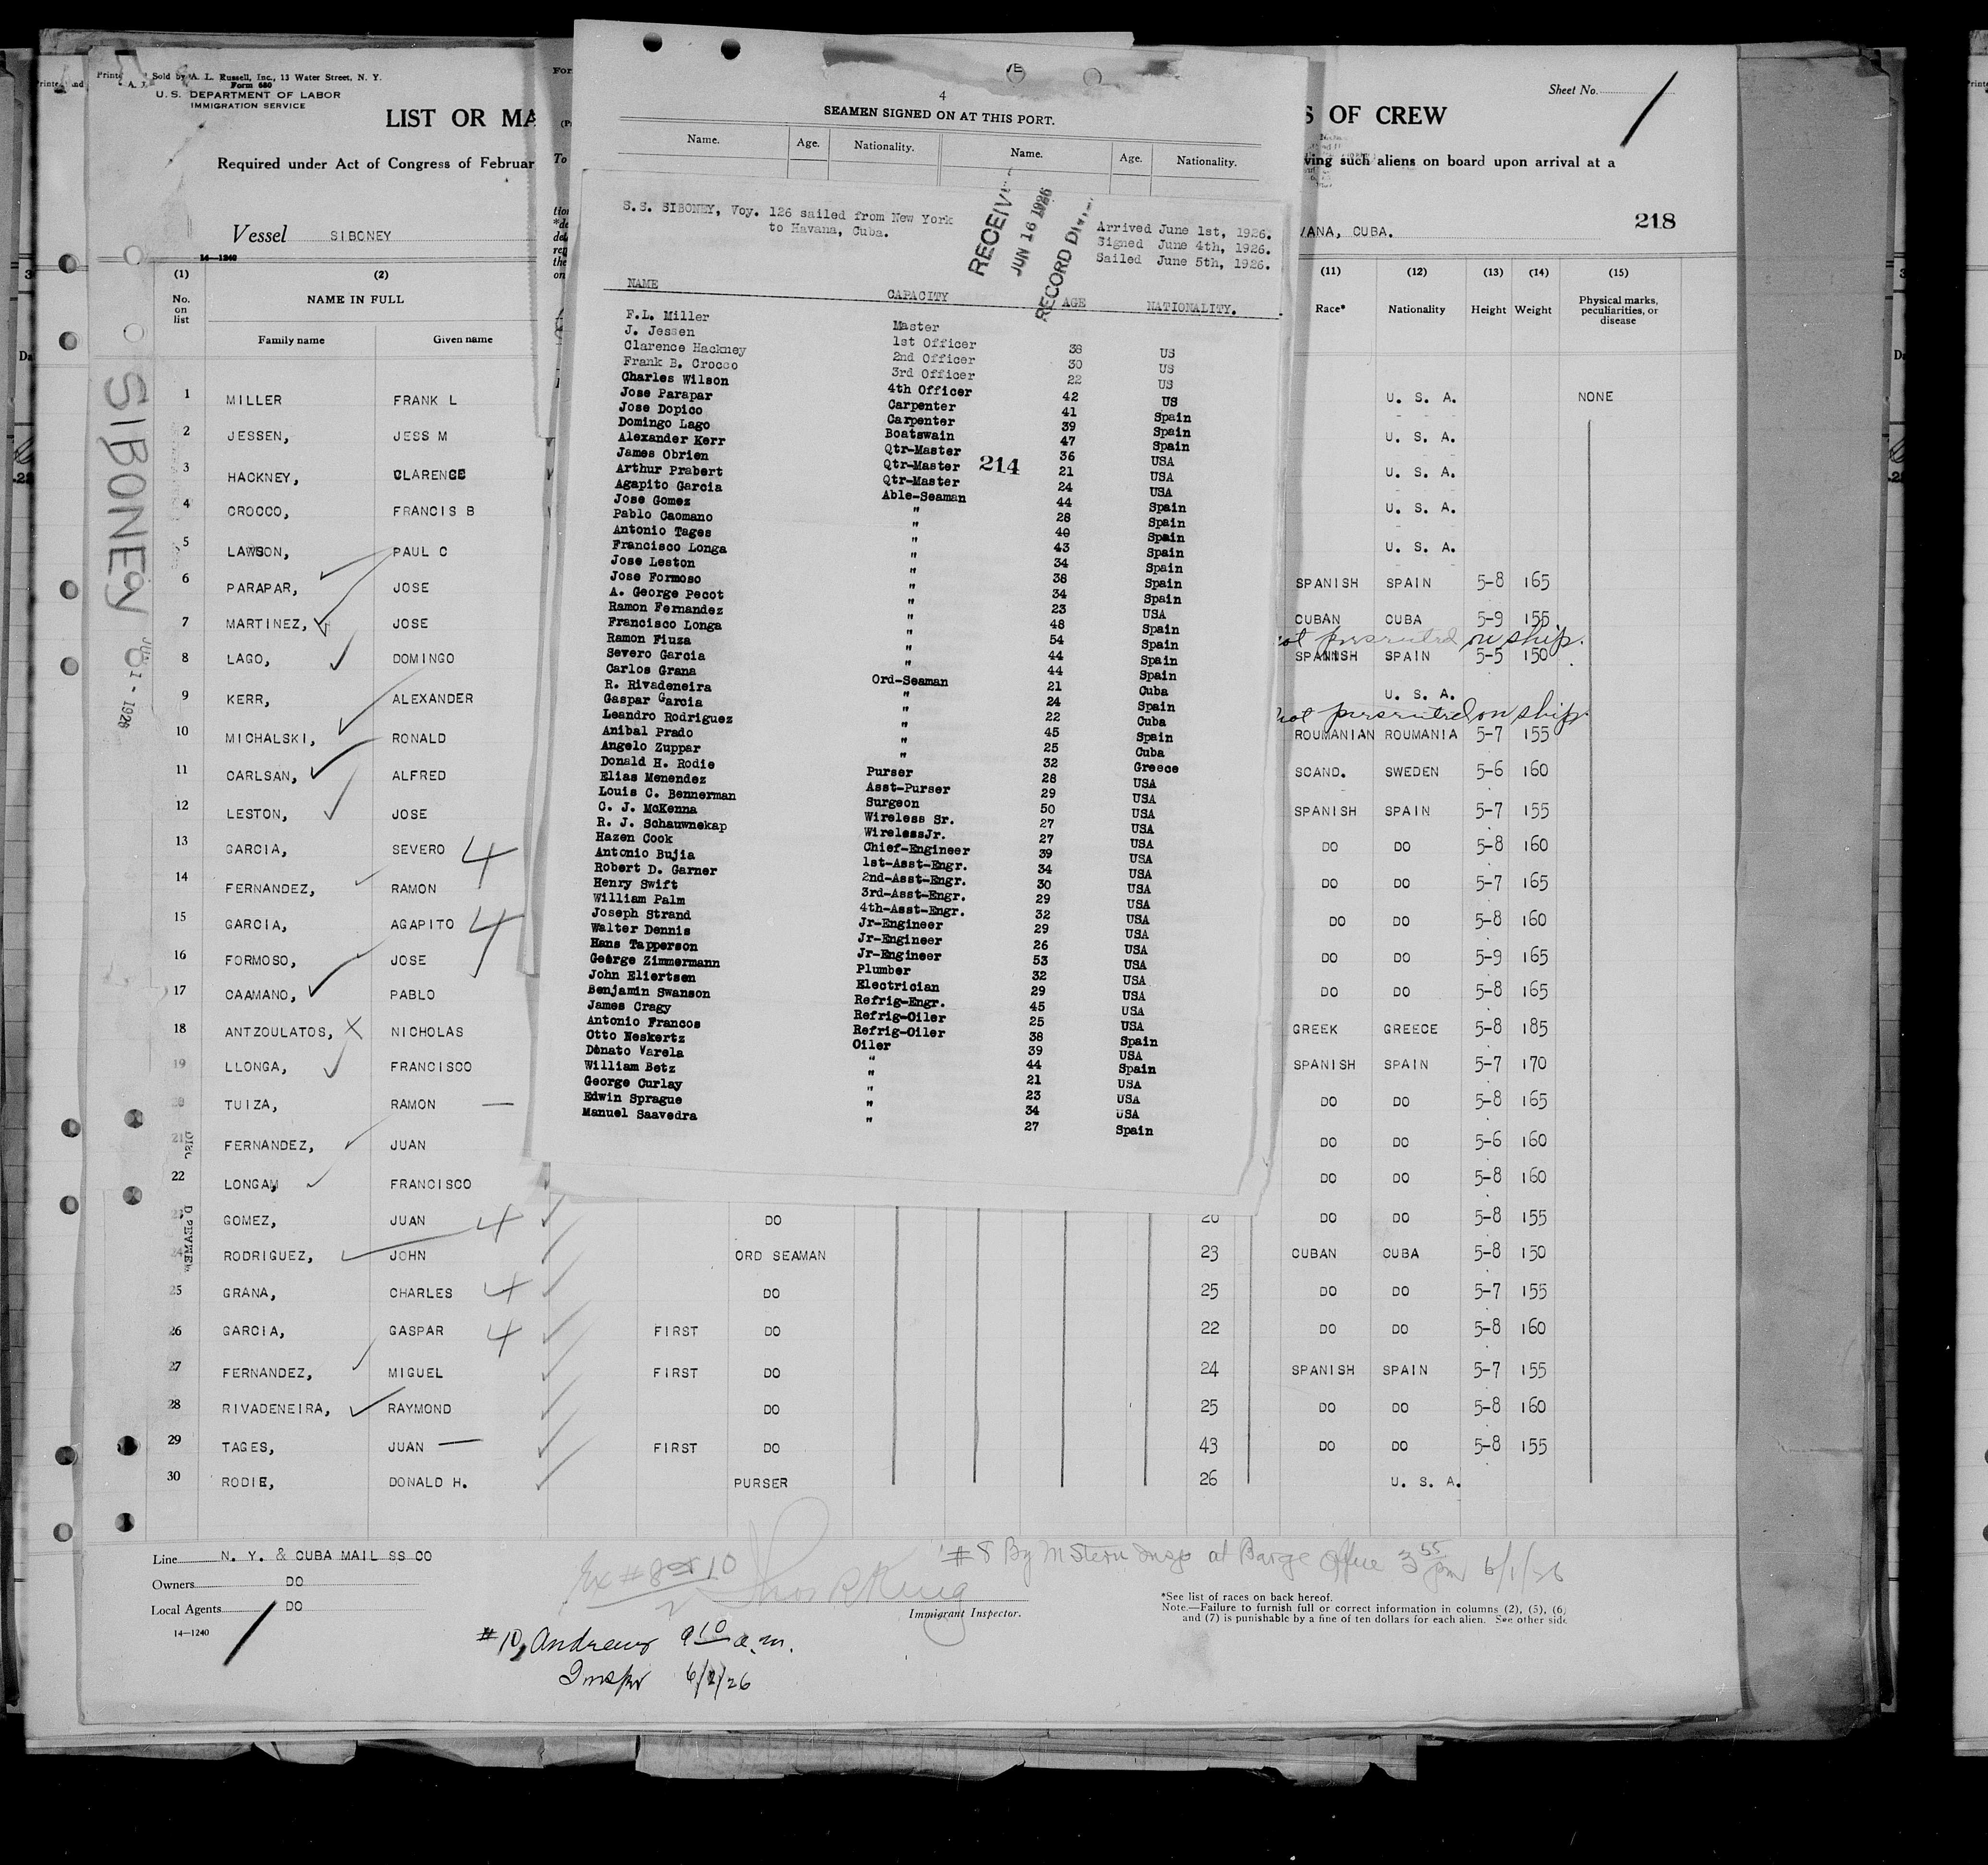 Sold by A. L. Russell, Inc., 13 Water Street, N. Y.
Form 680
U. S. DEPARTMENT OF LABOR
IMMIGRATION SERVICE
Sheet No. 1
LIST OR MA
S OF CREW
Required under Act of Congress of Februar
ving such aliens on board upon arrival at a
218
Vessel SIBONEY
VANA, CUBA.
14—1240
4
SEAMEN SIGNED ON AT THIS PORT.
Name. Age. Nationality. Name. Age. Nationality.
S.S. SIBONEY, Voy. 126 sailed from New York
to Havana, Cuba.
RECEIV
JUN 16 1926
RECORD DIV
Arrived June 1st, 1926.
Signed June 4th, 1926.
Sailed June 5th, 1926.
NAME CAPACITY AGE NATIONALITY.
F.L. Miller Master
J. Jessen 1st Officer 38 US
Clarence Hackney 2nd Officer 30 US
Frank B. Crocco 3rd Officer 22 US
Charles Wilson 4th Officer 42 US
Jose Parapar Carpenter 41 Spain
Jose Dopico Carpenter 39 Spain
Domingo Lago Boatswain 47 Spain
Alexander Kerr Qtr-Master 36 USA
James Obrien Qtr-Master 21 USA
214
Arthur Prabert Qtr-Master 24 USA
Agapito Garcia Able-Seaman 44 Spain
Jose Gomez " 28 Spain
Pablo Caomano " 40 Spain
Antonio Tages " 43 Spain
Francisco Longa " 34 Spain
Jose Leston " 38 Spain
Jose Formoso " 34 Spain
A. George Pecot " 23 USA
Ramon Fernandez " 48 Spain
Francisco Longa " 54 Spain
Ramon Fiuza " 44 Spain
Severo Garcia " 44 Spain
Carlos Grana Ord-Seaman 21 Cuba
R. Rivadeneira " 24 Spain
Gaspar Garcia " 22 Cuba
Leandro Rodriguez " 45 Spain
Anibal Prado " 25 Cuba
Angelo Zuppar " 32 Greece
Donald H. Rodie Purser 28 USA
Elias Menendez Asst-Purser 29 USA
Louis C. Bennerman Surgeon 50 USA
C. J. McKenna Wireless Sr. 27 USA
R. J. Schauwnekap WirelessJr. 27 USA
Hazen Cook Chief-Engineer 39 USA
Antonio Bujia 1st-Asst-Engr. 34 USA
Robert D. Garner 2nd-Asst-Engr. 30 USA
Henry Swift 3rd-Asst-Engr. 29 USA
William Palm 4th-Asst-Engr. 32 USA
Joseph Strand Jr-Engineer 29 USA
Walter Dennis Jr-Engineer 26 USA
Hans Tapperson Jr-Engineer 53 USA
George Zimmermann Plumber 32 USA
John Eliertsen Electrician 29 USA
Benjamin Swanson Refrig-Engr. 45 USA
James Cragy Refrig-Oiler 25 USA
Antonio Francos Refrig-Oiler 38 Spain
Otto Neskertz Oiler 39 USA
Donato Varela " 44 Spain
William Betz " 21 USA
George Curlay " 23 USA
Edwin Sprague " 34 USA
Manuel Saavedra " 27 Spain
SIBONEY
(1) (2) (11) (12) (13) (14) (15)
No. on list NAME IN FULL Race* Nationality Height Weight Physical marks, peculiarities, or disease
Family name Given name
1 MILLER FRANK L U. S. A. NONE
2 JESSEN, JESS M U. S. A.
3 HACKNEY, CLARENCE U. S. A.
4 CROCCO, FRANCIS B U. S. A.
5 LAWSON, PAUL C U. S. A.
6 PARAPAR, JOSE SPANISH SPAIN 5-8 165
7 MARTINEZ, JOSE CUBAN CUBA 5-9 155
on ship.
8 LAGO, DOMINGO SPANISH SPAIN 5-5 150
9 KERR, ALEXANDER U. S. A.
on ship.
10 MICHALSKI, RONALD ROUMANIAN ROUMANIA 5-7 155
11 CARLSAN, ALFRED SCAND. SWEDEN 5-6 160
12 LESTON, JOSE SPANISH SPAIN 5-7 155
13 GARCIA, SEVERO 4 DO DO 5-8 160
14 FERNANDEZ, RAMON DO DO 5-7 165
15 GARCIA, AGAPITO 4 DO DO 5-8 160
16 FORMOSO, JOSE DO DO 5-9 165
17 CAAMANO, PABLO DO DO 5-8 165
18 ANTZOULATOS, X NICHOLAS GREEK GREECE 5-8 185
19 LLONGA, FRANCISCO SPANISH SPAIN 5-7 170
20 TUIZA, RAMON DO DO 5-8 165
21 FERNANDEZ, JUAN DO DO 5-6 160
22 LONGA, FRANCISCO DO DO 5-8 160
23 GOMEZ, JUAN 4 DO 20 DO DO 5-8 155
24 RODRIGUEZ, JOHN ORD SEAMAN 23 CUBAN CUBA 5-8 150
25 GRANA, CHARLES 4 DO 25 DO DO 5-7 155
26 GARCIA, GASPAR 4 FIRST DO 22 DO DO 5-8 160
27 FERNANDEZ, MIGUEL FIRST DO 24 SPANISH SPAIN 5-7 155
28 RIVADENEIRA, RAYMOND DO 25 DO DO 5-8 160
29 TAGES, JUAN FIRST DO 43 DO DO 5-8 155
30 RODIE, DONALD H. PURSER 26 U. S. A.
Line N. Y. & CUBA MAIL SS CO
Owners DO
Local Agents DO
14—1240
#8 By M Stern Insp at Barge Office 3 55 pm 6/1/26
Immigrant Inspector.
*See list of races on back hereof.
Note.—Failure to furnish full or correct information in columns (2), (5), (6)
and (7) is punishable by a fine of ten dollars for each alien. See other side
#10, Andrews 9 10 a.m.
Inspr 6/2/26